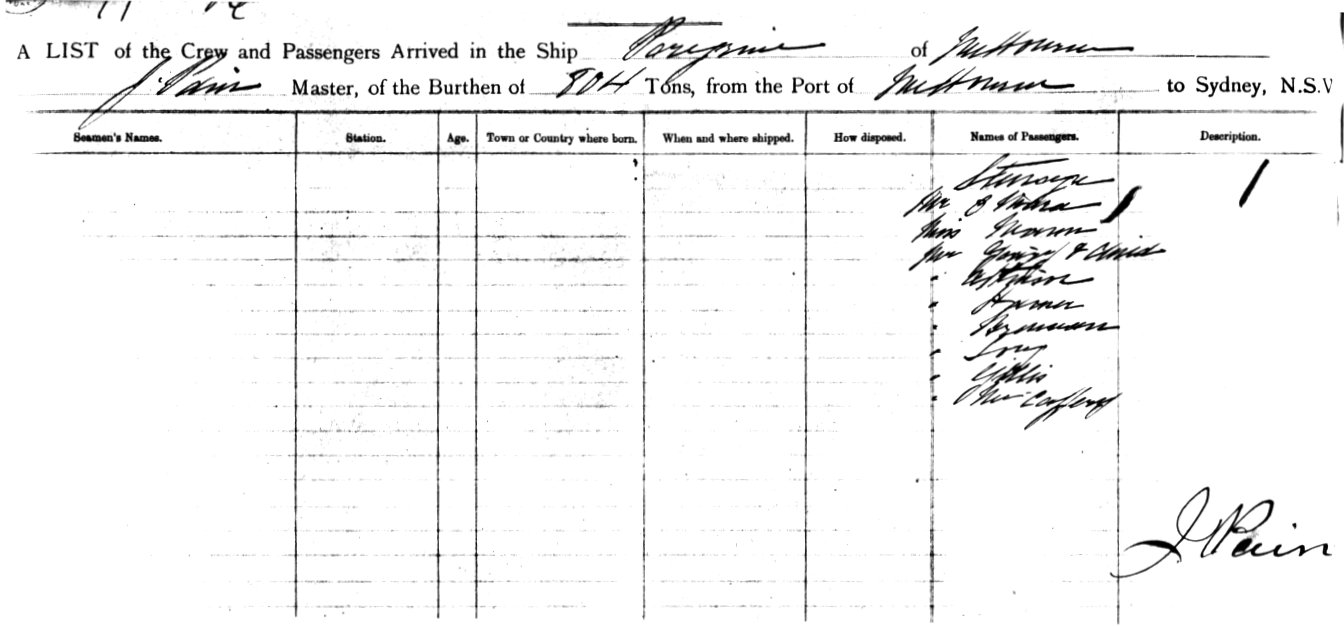 A LIST of the Crew and Passengers Arrived in the Ship Peregrine of Melbourne
J Pain Master, of the Burthen of 804 Tons, from the Port of Melbourne to Sydney, N.S.W
Seamen's Names. Station. Age. Town or Country where born. When and where shipped. How disposed. Names of Passengers. Description.
Mr O'Meara
Miss
Mr & Child
" Harner
" Brennan
" Long
" Gillis
" McCafferey
J Pain